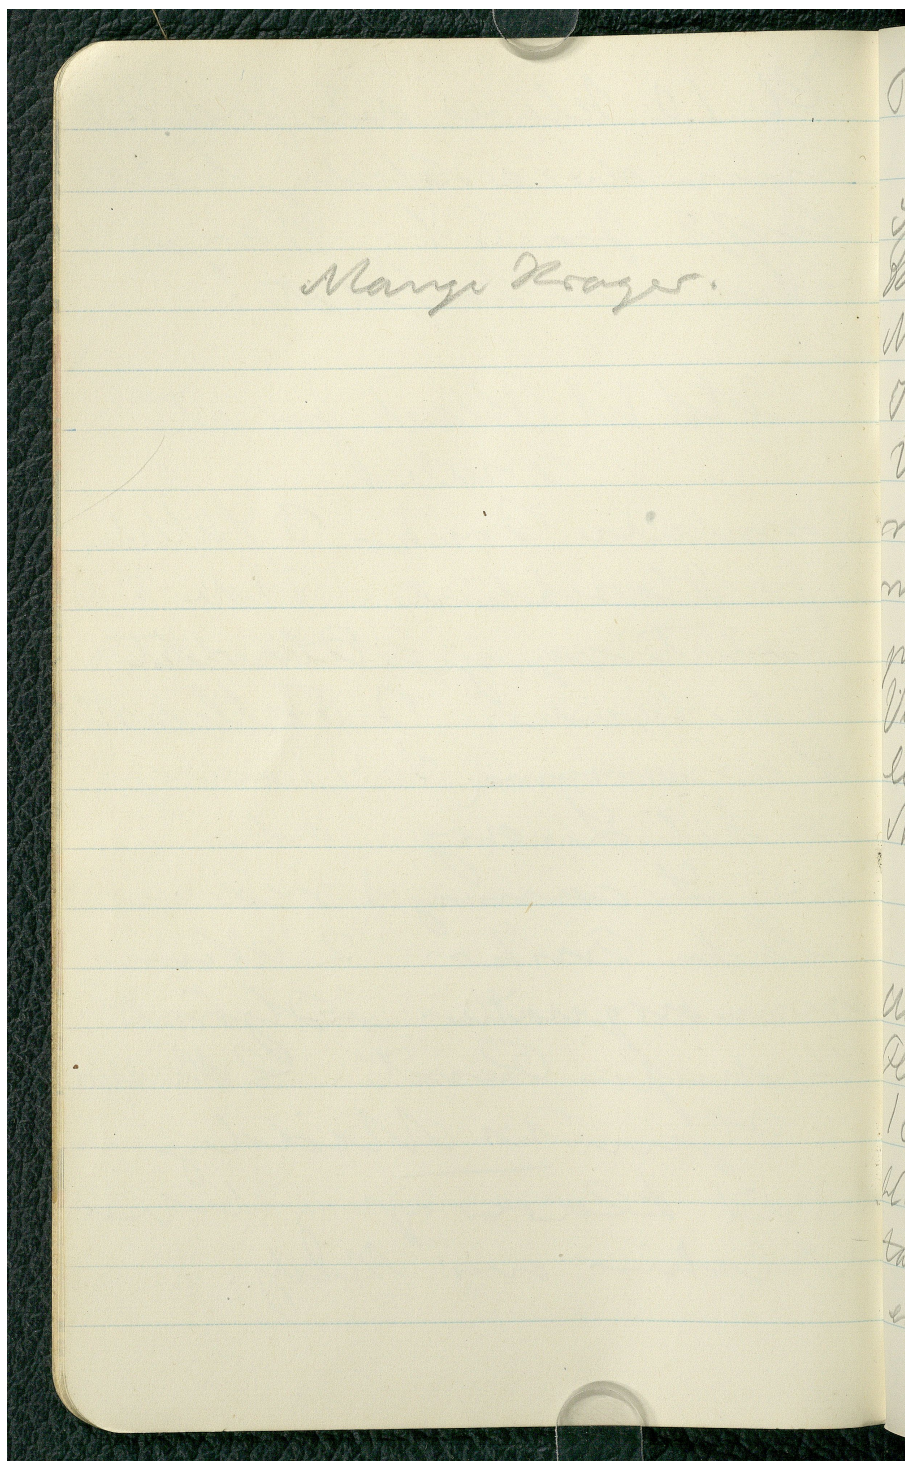 Mange Krager.